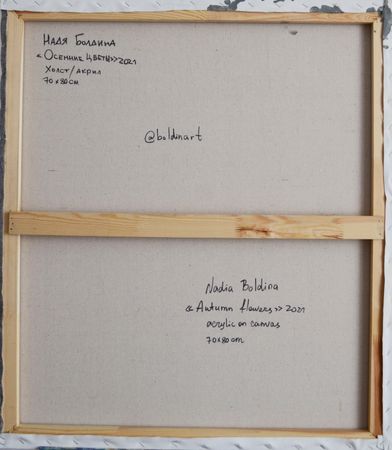 Надя Болдина
«Осенние цветы» 2021
Холст/акрил
70x80см
@boldinart
Nadia Boldina
«Autumn flowers» 2021
acrylic on canvas
70x80cm